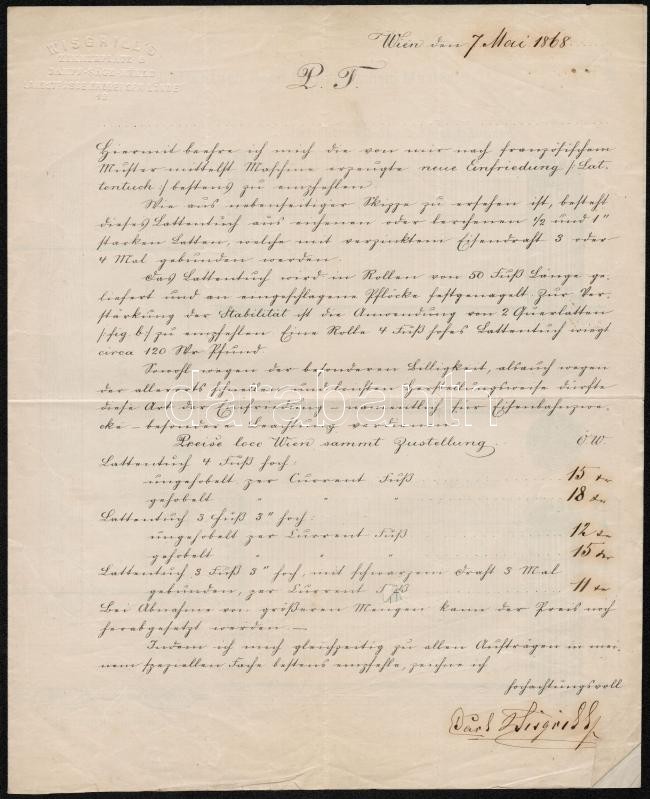 WISGRILL'S
Wien den 7 Mai 1868
P. T.
Hiermit beehre ich mich die von mir nach französischem
Muster mittelst Maschine erzeugte neue Einfriedung /: Lat-
tentuch :/ bestens zu empfehlen
Wie aus nebenseitiger Skizze zu ersehen ist, besteht
dieses Lattentuch aus eichenen oder lerchenen 1/2 und 1"
starken Latten, welche mit verzinktem Eisendraht 3 oder
4 Mal gebunden werden.
Das Lattentuch wird in Rollen von 50 Fuß Länge ge-
liefert und an eingeschlagene Pflöcke festgenagelt. Zur Ver-
stärkung der Stabilität ist die Anwendung von 2 Querlatten
/: fig. b :/ zu empfehlen Eine Rolle 4 Fuß hohes Lattentuch wiegt
circa 120 Wr Pfund
Sowohl wegen der besonderen Billigkeit, als auch wegen
der allerorts schnellen und leichten Herstellungsweise dürfte
diese Art der Einfriedung – namentlich für Eisenbahnzwe-
cke – besondere Beachtung verdienen
Preise loco Wien sammt Zustellung. ö W.
Lattentuch 4 Fuß hoch:
ungehobelt per Current Fuß 15 kr
gehobelt " " " 18 kr
Lattentuch 3 Fuß 3" hoch:
ungehobelt per Current Fuß 12 kr
gehobelt " " " 15 kr
Lattentuch 3 Fuß 3" hoch, mit schwarzem Draht 3 Mal
gebunden, per Current Fuß 11 kr
Bei Abnahme von größeren Mengen kann der Preis noch
herabgesetzt werden –
Indem ich mich gleichzeitig zu allen Aufträgen in mei-
nem speziellen Fache bestens empfehle, zeichne ich
hochachtungsvoll
Carl Wisgrill
darabanth